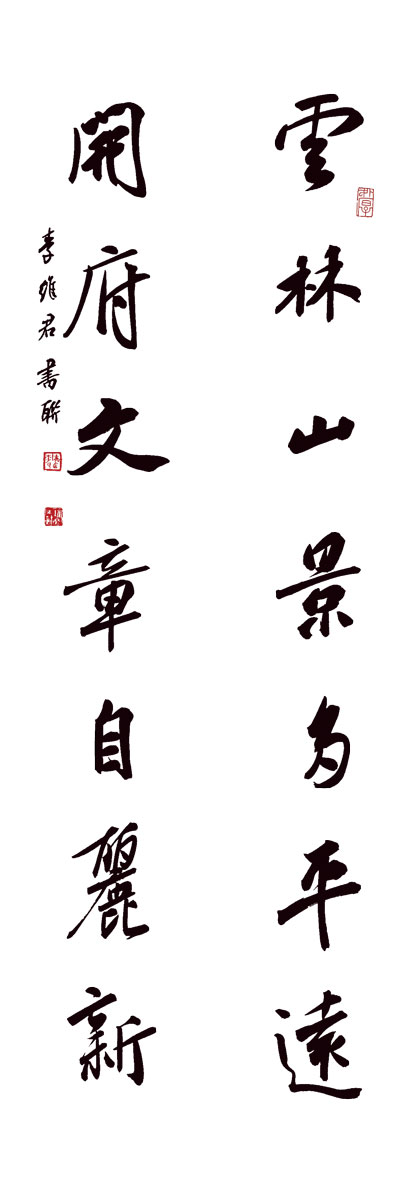 雲林山景多平遠
開府文章自麗新
李維君書聯